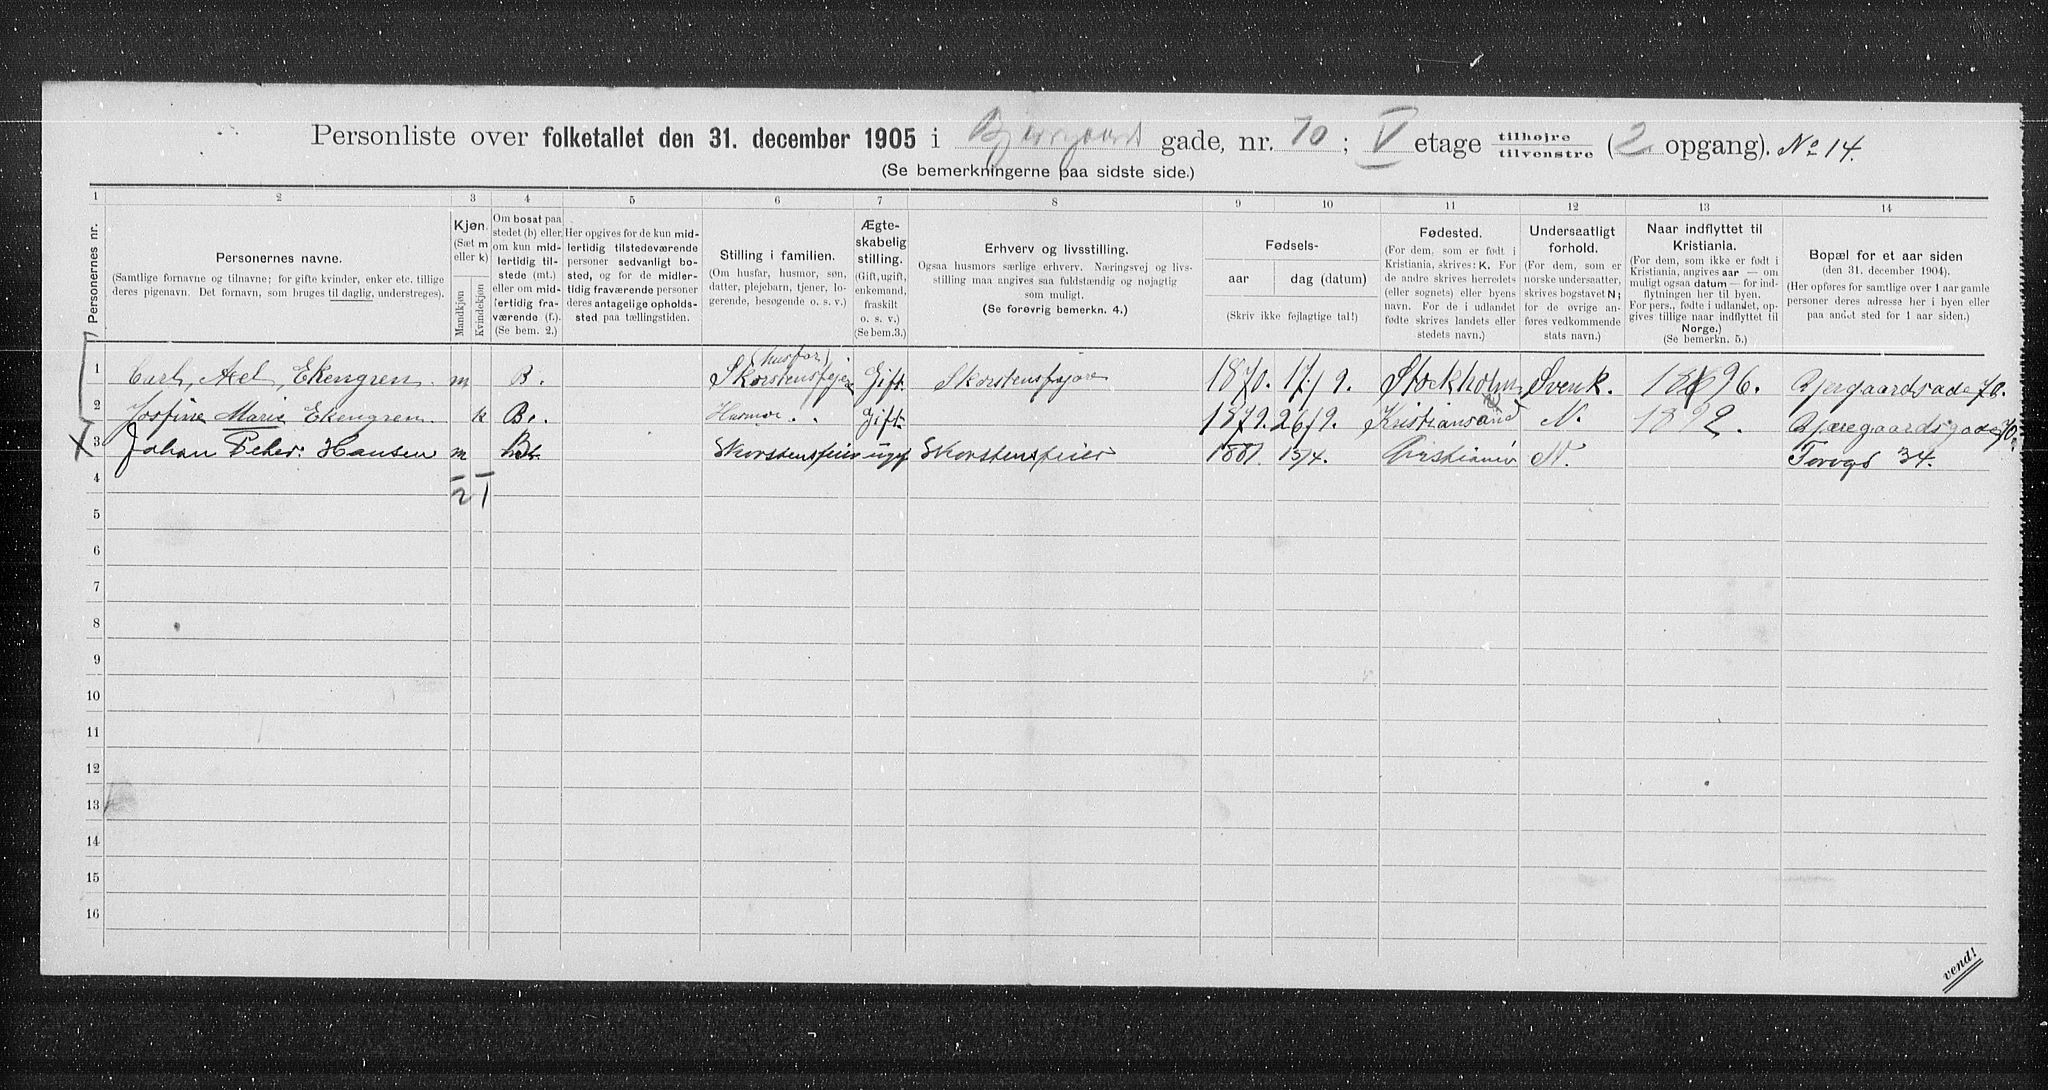 Personliste over folketallet den 31. december 1905 i Bjergaards gade, nr. 70; V etage tilhøjre / tilvenstre (2 opgang). No 14.
(Se bemerkningerne paa sidste side.)
1 2 3 4 5 6 7 8 9 10 11 12 13 14
Personernes nr.
Personernes navne.
(Samtlige fornavne og tilnavne; for gifte kvinder, enker etc. tillige deres pigenavn. Det fornavn, som bruges til daglig, understreges).
Kjøn.
(Sæt m eller k)
Mandkjøn
Kvindekjøn
Om bosat paa stedet (b) eller om kun midlertidig tilstede (mt.) eller om midlertidig fraværende (f.). (Se bem. 2.)
Her opgives for de kun midlertidig tilstedeværende personer sedvanligt bosted, og for de midlertidig fraværende personer deres antagelige opholdssted paa tællingstiden.
Stilling i familien.
(Om husfar, husmor, søn, datter, plejebarn, tjener, logerende, besøgende o. s. v.)
Ægteskabelig stilling.
(Gift, ugift, enkemand, fraskilt o. s. v.)
(Se bem. 3.)
Erhverv og livsstilling.
Ogsaa husmors særlige erhverv. Næringsvej og livsstilling maa angives saa fuldstændig og nøjagtig som muligt.
(Se forøvrig bemerkn. 4.)
Fødsels-
aar
dag (datum)
(Skriv ikke fejlagtige tal!)
Fødested.
(For dem, som er født i Kristiania, skrives: K. For de andre skrives herredets (eller sognets) eller byens navn. For de i udlandet fødte skrives landets eller stedets navn.)
Undersaatligt forhold.
(For dem, som er norske undersaatter, skrives bogstavet N; for de øvrige anføres vedkommende stats navn.)
Naar indflyttet til Kristiania.
(For dem, som ikke er født i Kristiania, angives aar — om muligt ogsaa datum — for indflytningen her til byen. For pers., fødte i udlandet, opgives tillige naar indflyttet til Norge.)
(Se bemerkn. 5.)
Bopæl for et aar siden
(den 31. december 1904).
(Her opføres for samtlige over 1 aar gamle personer deres adresse her i byen eller paa andet sted for 1 aar siden.)
(husfar)
1 Carl, Axel, Ekengren. m B. Skorstensfejer Gift. Skorstensfejer 1870. 17/9. Stockholm Svensk. 1896. Bjergaardsgade 70.
2 Josfine Marie Ekengren. k B. Husmor. Gift. 1879. 26/9. Kristiansand N. 1892. Bjæregaardsgade 70.
3 Johan Peter Hansen m Skorstensfeier ugift Skorstensfeier 1881. 15/4. Christiania N. Torvgd 34.
4 2 1
5
6
7
8
9
10
11
12
13
14
15
16
vend!